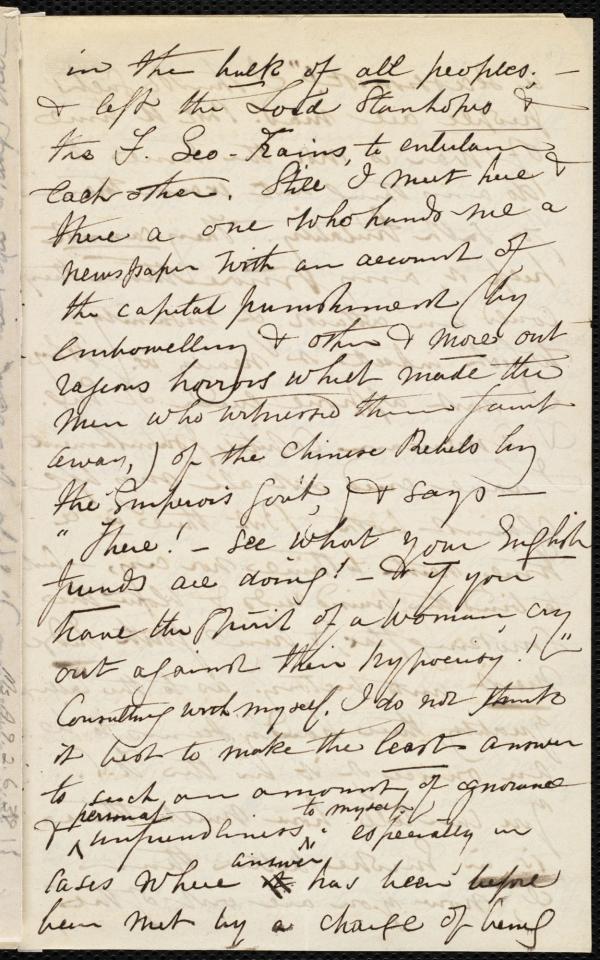 in the bulk of all peoples; —
& left the Lord Stanhopes &
the F. Geo-Trains, to entertain
each other. Still I meet here &
there a one who hands me a
newspaper with an account of
the capital punishment (by
embowelling & other & more out
rageous horrors which made the
men who witnessed them faint
away,) of the Chinese Rebels by
the Emperor's Gov't,) & says —
"There! — see what your English
friends are doing! — & if you
have the spirit of a woman cry
out against their hypocrisy!"
Consulting with myself, I do not think
it best to make the least answer
to such an amount of ignorance
& personal unfriendliness to myself; especially in
cases where answer has been
been met by a charge of being